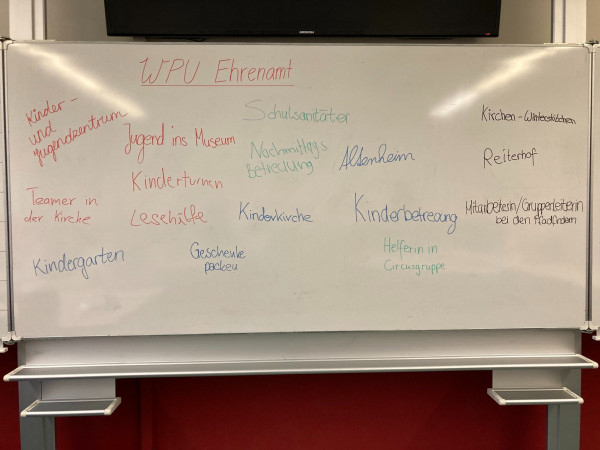 WPU Ehrenamt
Kinder-
und
Jugendzentrum
Jugend ins Museum
Schulsanitäter
Nachmittags
Betreuung
Altenheim
Kirchen-
Reiterhof
Kinderturnen
Teamer in
der Kirche
Lesehilfe
Kinderkirche
Kinderbetreuung
Mitarbeterin/Gruppenleiterin
bei den Pfadfindern
Kindergarten
Geschenke
packen
Helferin in
Circusgruppe